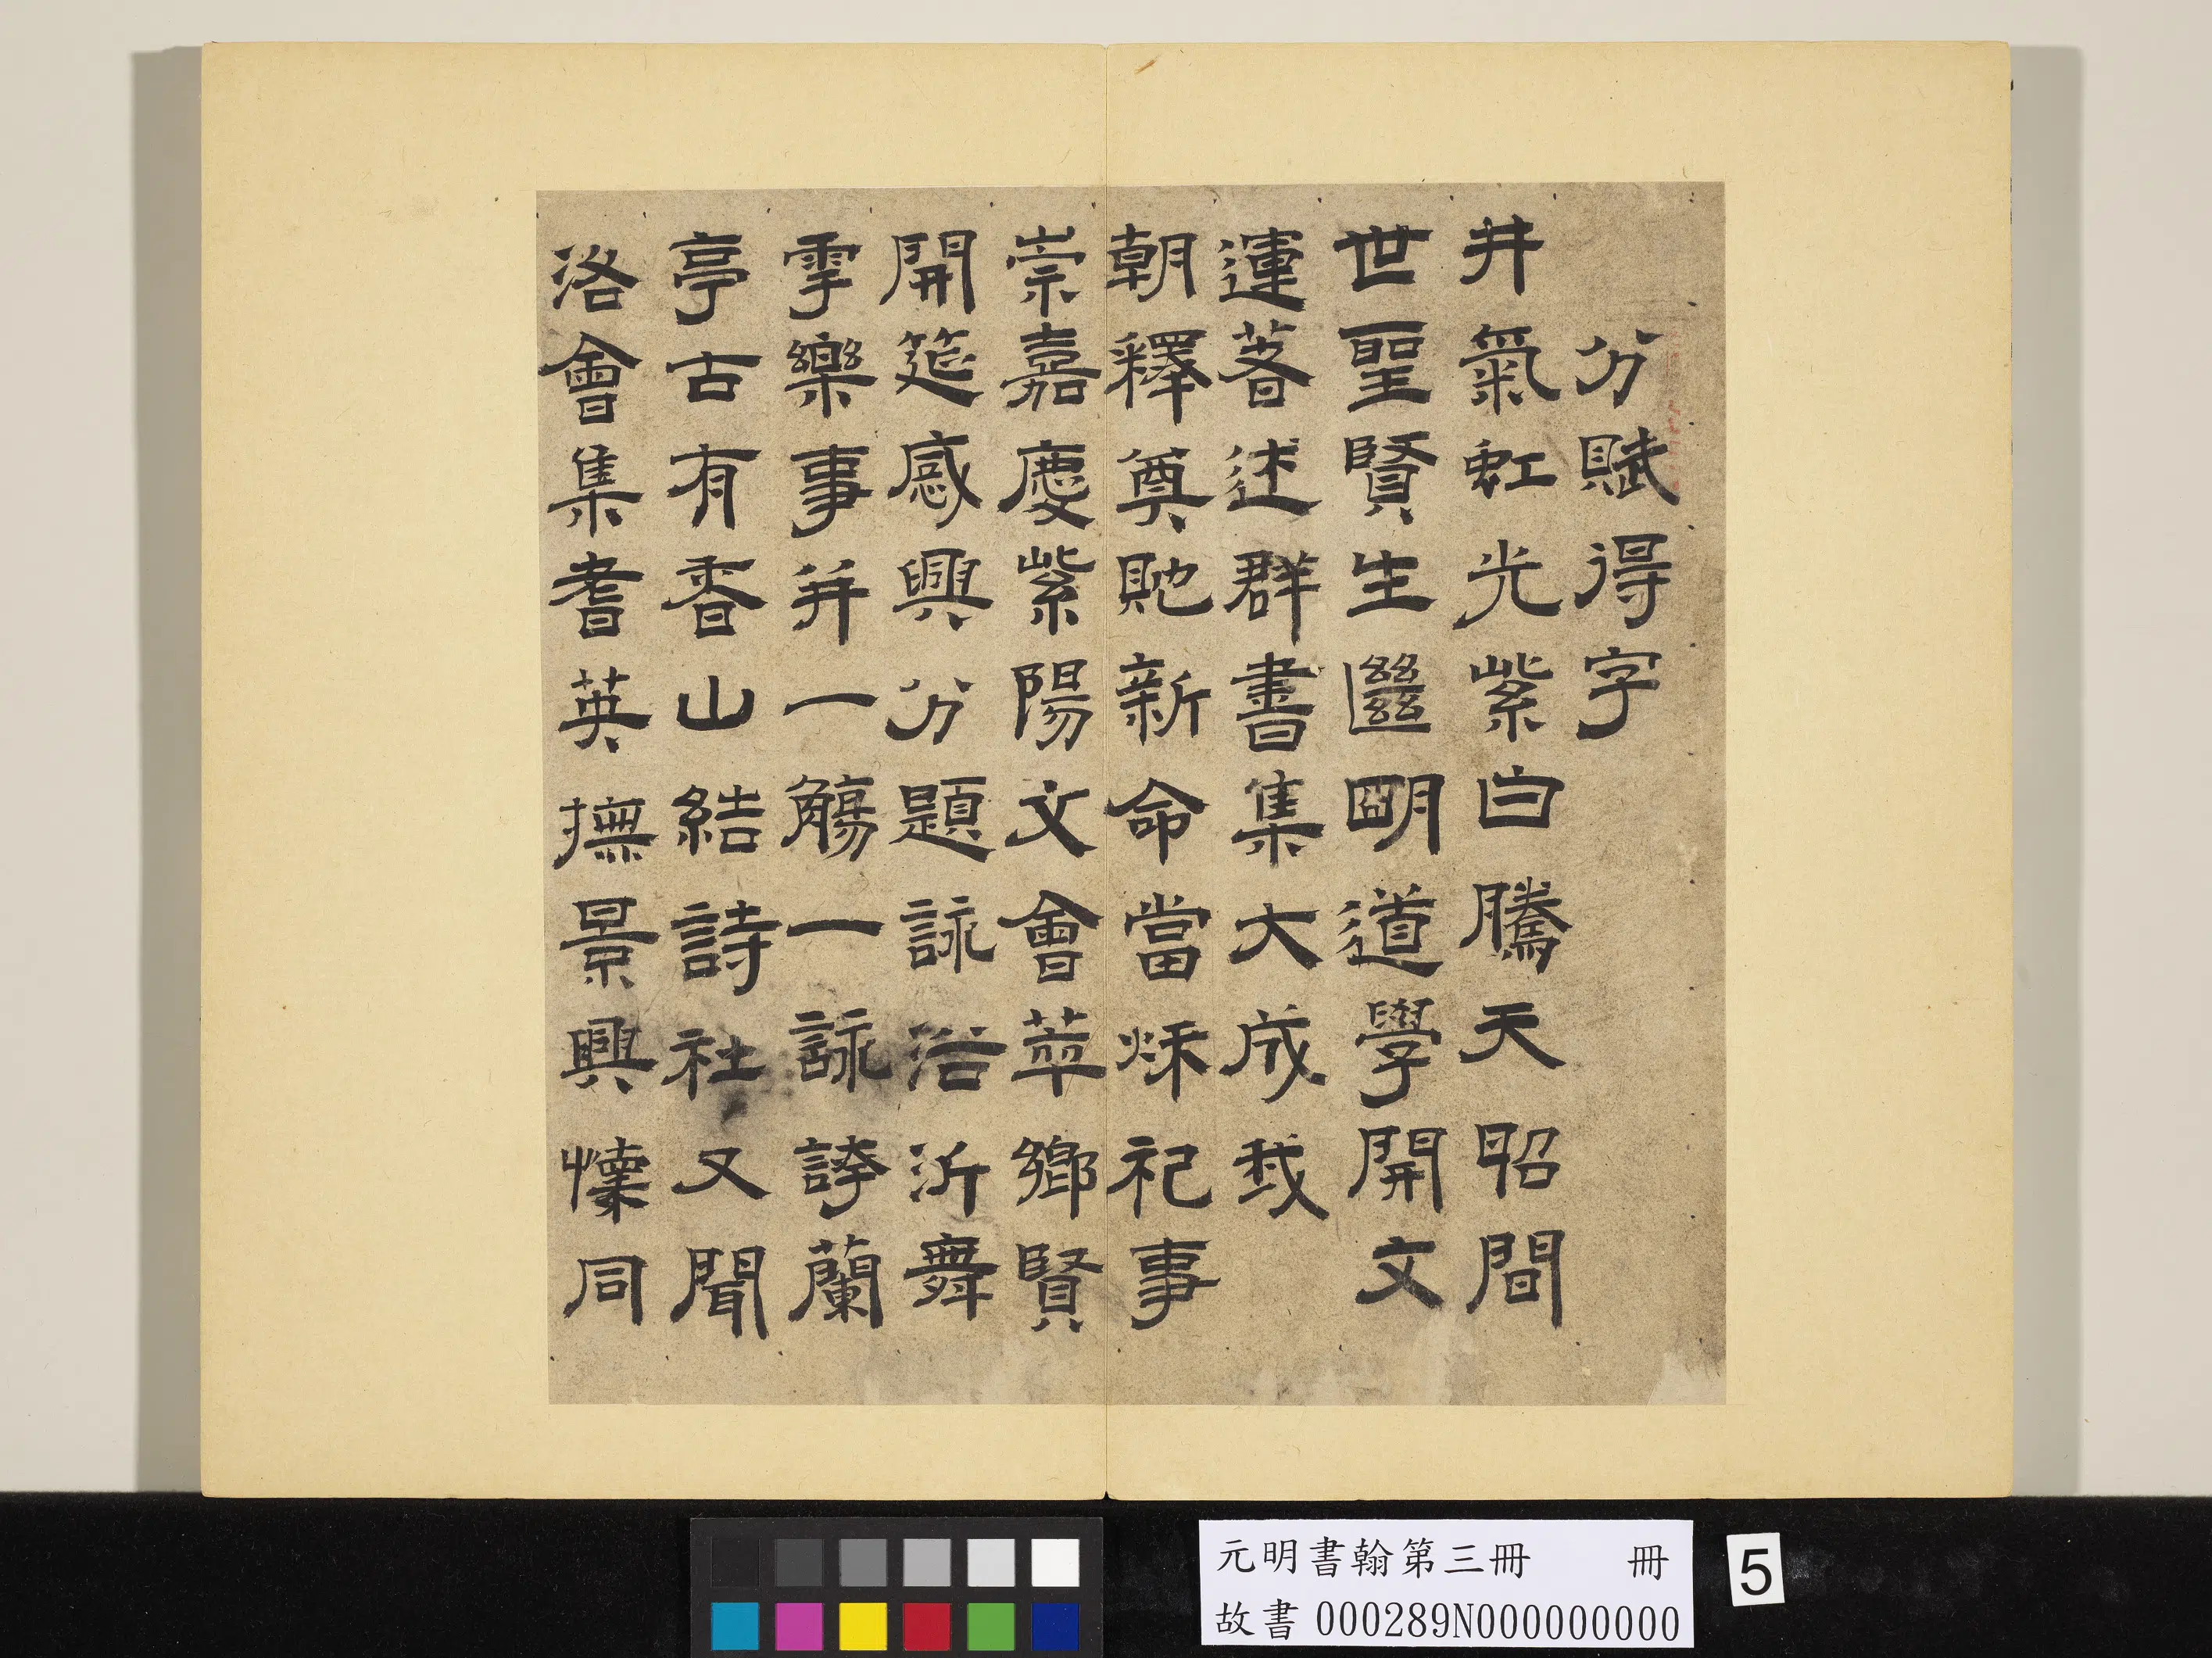 分賦得字
井氣虹光紫白騰天昭間
世聖賢生繼明道學開文
運著述群書集大成我
朝釋奠貤新命當秌祀事
崇嘉慶紫陽文會萃鄉賢
開筵感興分題詠浴沂舞
雩樂事并一觴一詠誇蘭
亭古有香山結詩社又聞
洛會集耆英撫景興懷同
元明書翰第三冊 冊
故書 000289N000000000
5